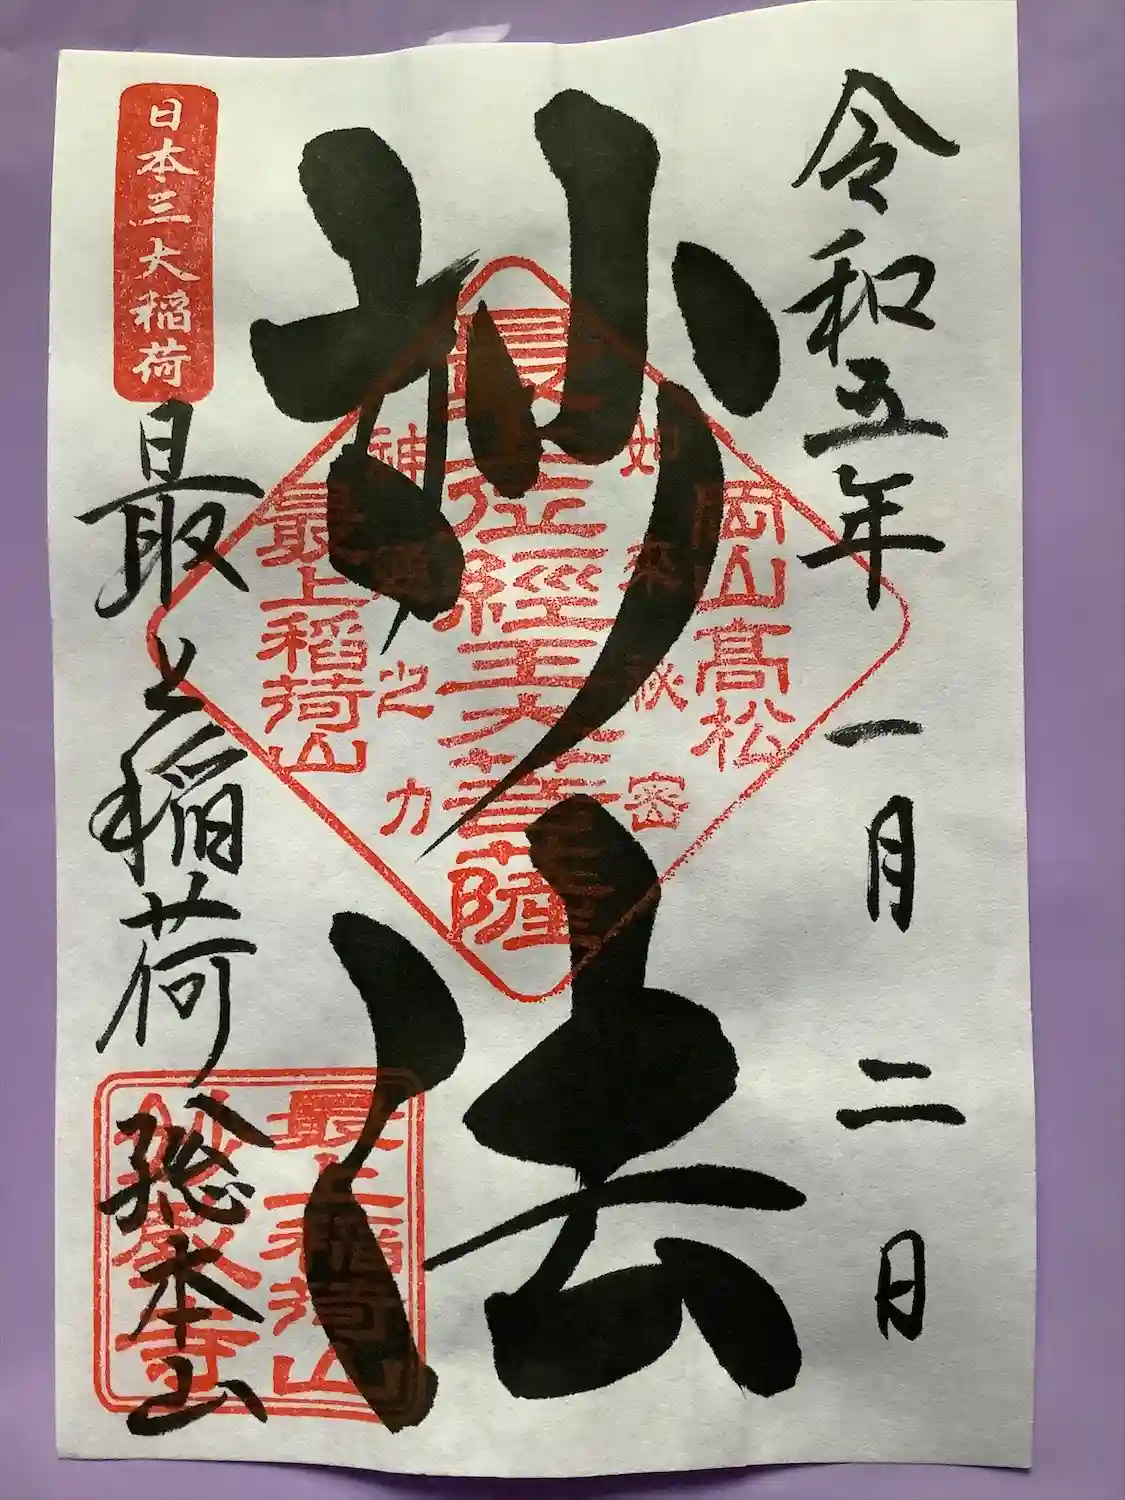 令和五年一月二日
岡山高松
如来秘密
妙法
最上位經王大菩薩
神通之力
最上稲荷山
日本三大稲荷
最上稲荷総本山
最上稲荷山
妙教寺